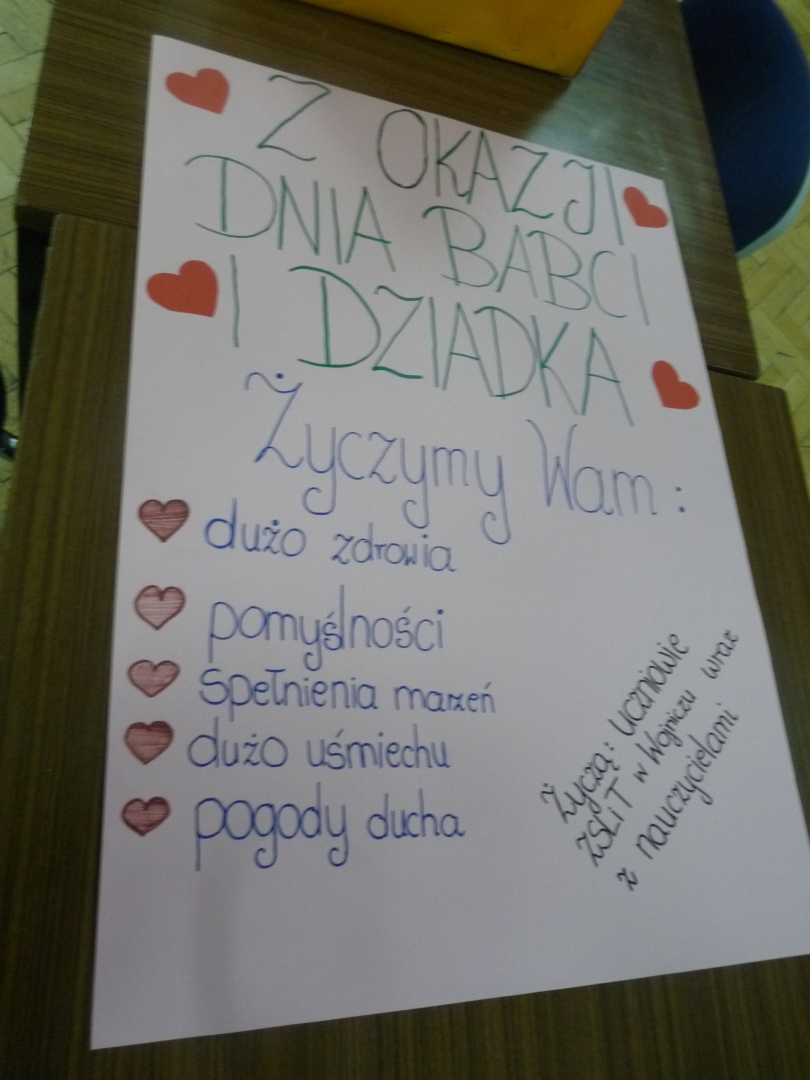 Z OKAZJI
DNIA BABCI
I DZIADKA
Życzymy Wam:
dużo zdrowia
pomyślności
spełnienia marzeń
dużo uśmiechu
pogody ducha
Życzą: Uczniowie
ZSLiT w Wojniczu wraz
z nauczycielami